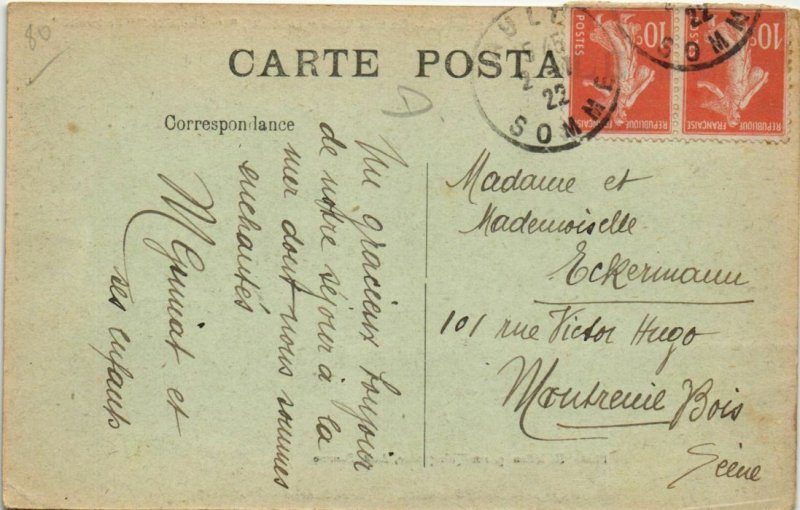 80
CARTE POSTA
Correspondance
Un gracieux bonjour
de notre séjour à la
mer dont nous sommes
enchantés
M Guinat et
ses enfants
AULT
22
SOMME
22
SOMME
POSTES
10c
REPUBLIQUE FRANÇAISE
10c
REPUBLIQUE FRANÇAISE
Madame et
Mademoiselle
Eckermann
101 rue Victor Hugo
Montreuil Bois
Seine